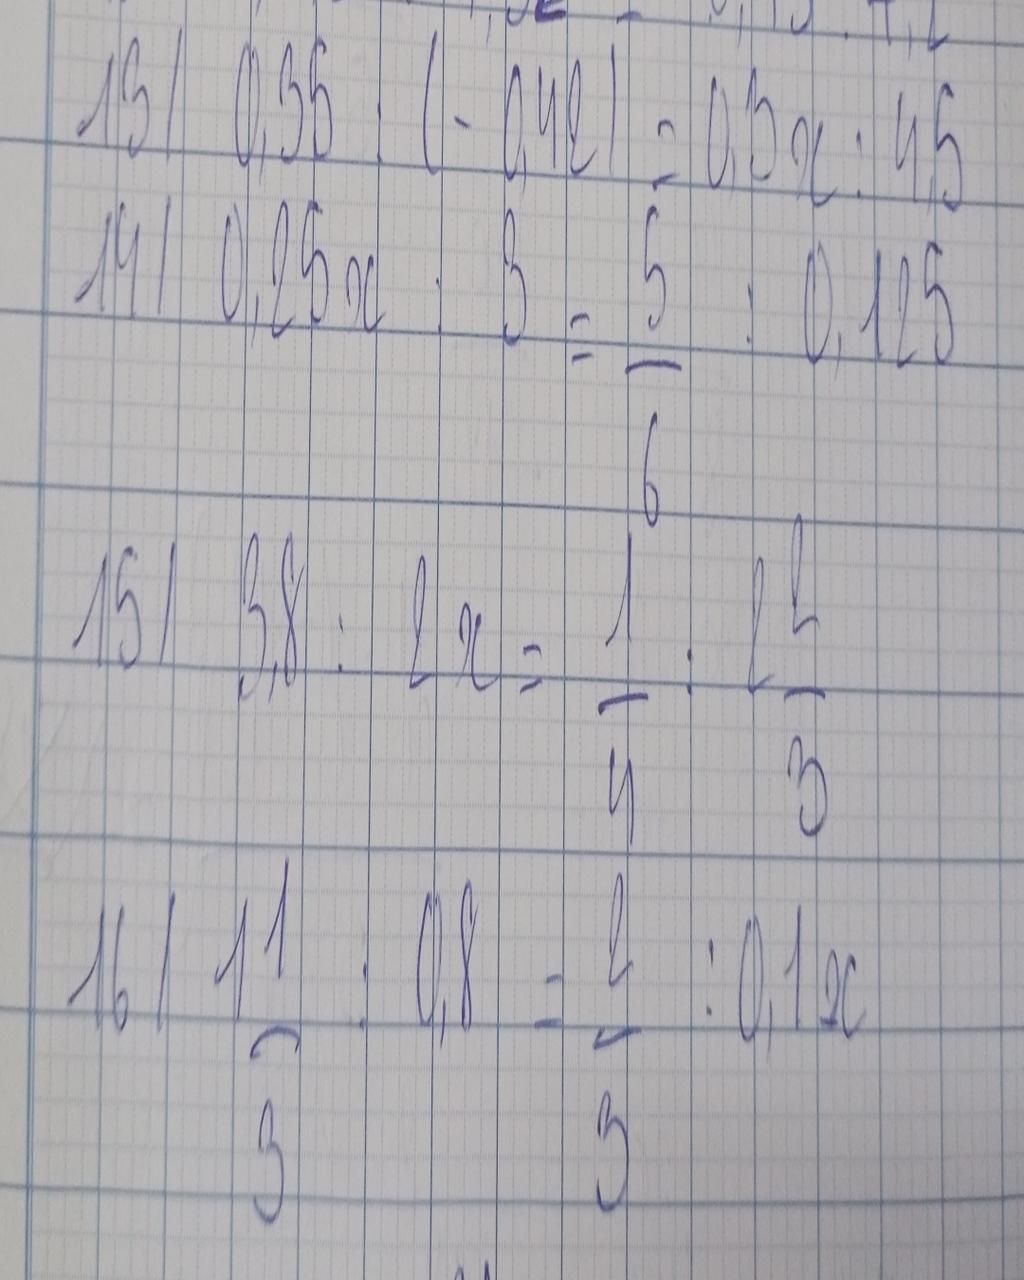 13) 0,35 : (-0,42) = 0,3x : 4,5
14) 0,25x : 3 = 5/6 : 0,125
15) 3,8 : 2x = 1/4 : 2 2/3
16) 1 1/3 : 0,8 = 2/3 : 0,1x